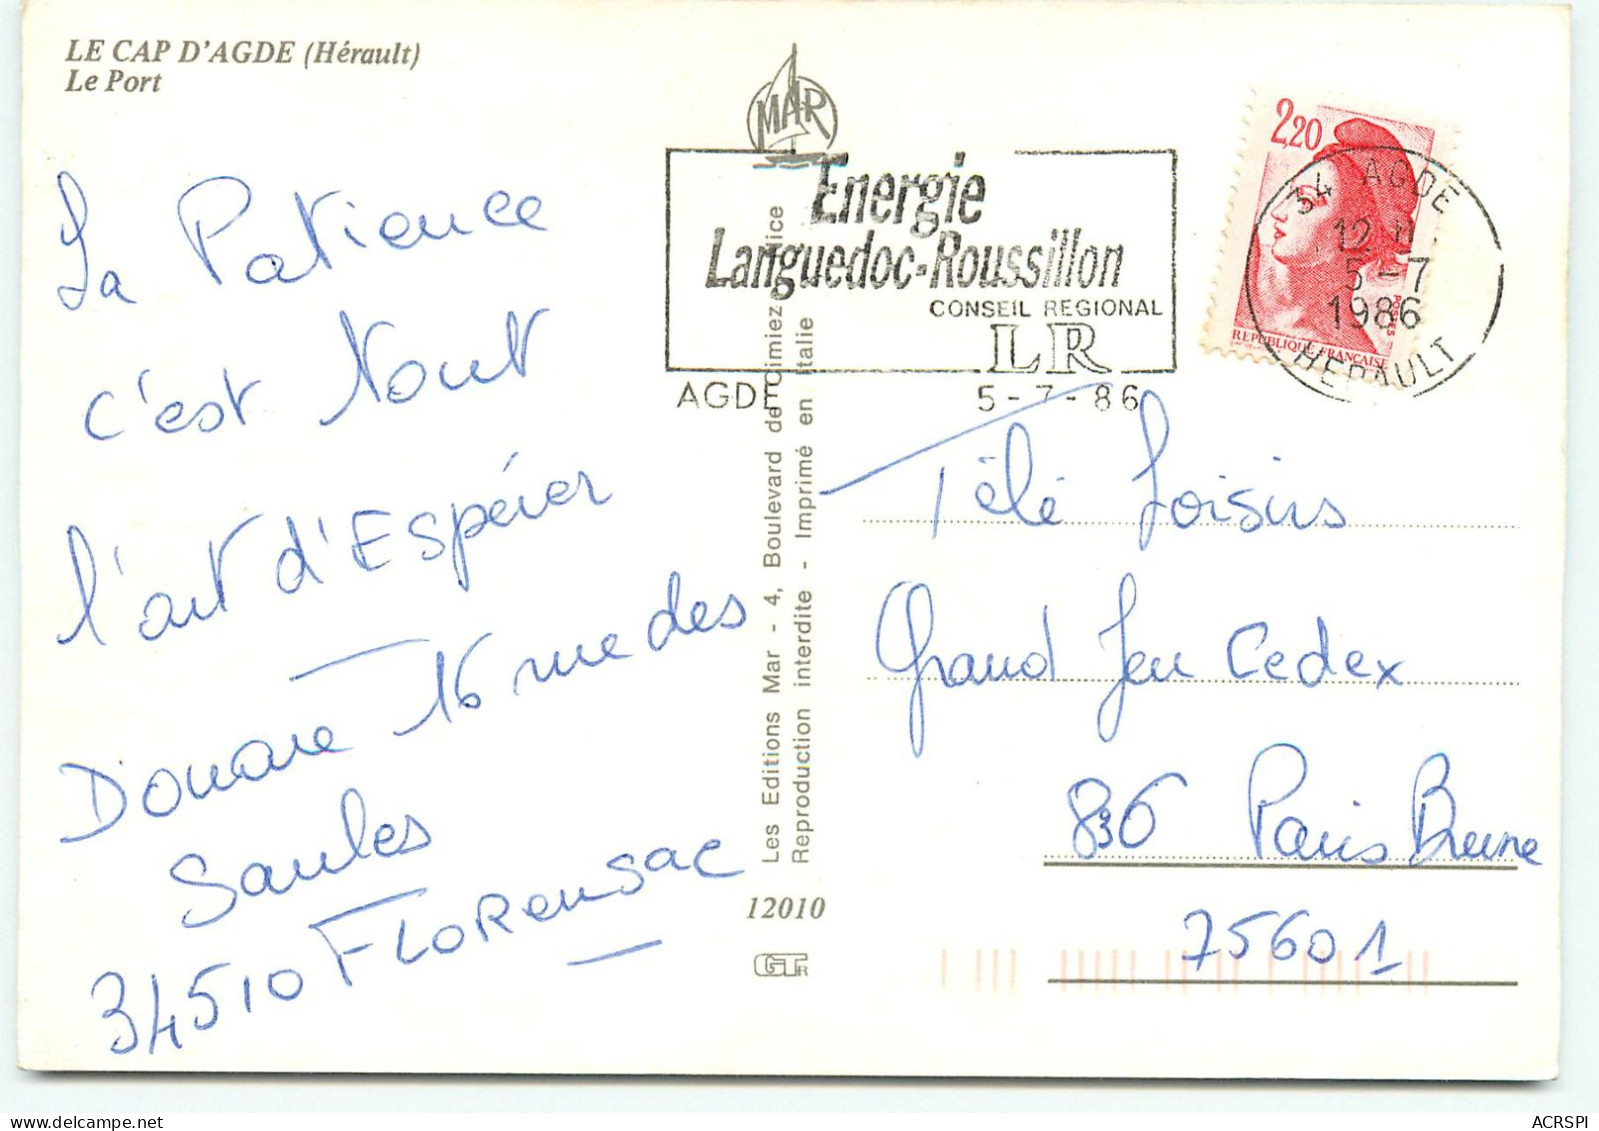 LE CAP D'AGDE (Hérault)
Le Port
MAR
La Patience
c'est Tout
l'art d'Espérer
Douare 16 rue des
Saules
34510 FLORENSAC
Les Editions Mar - 4, Boulevard de Cimiez - Nice
Reproduction interdite - Imprimé en Italie
12010
Energie
Languedoc-Roussillon
CONSEIL REGIONAL
LR
AGDE 5-7-86
2,20
POSTES
REPUBLIQUE FRANÇAISE
34 AGDE
12 H
5-7
1986
HERAULT
Télé Loisirs
Grand Jeu Cedex
836 Paris Brune
75601
ACRSPI